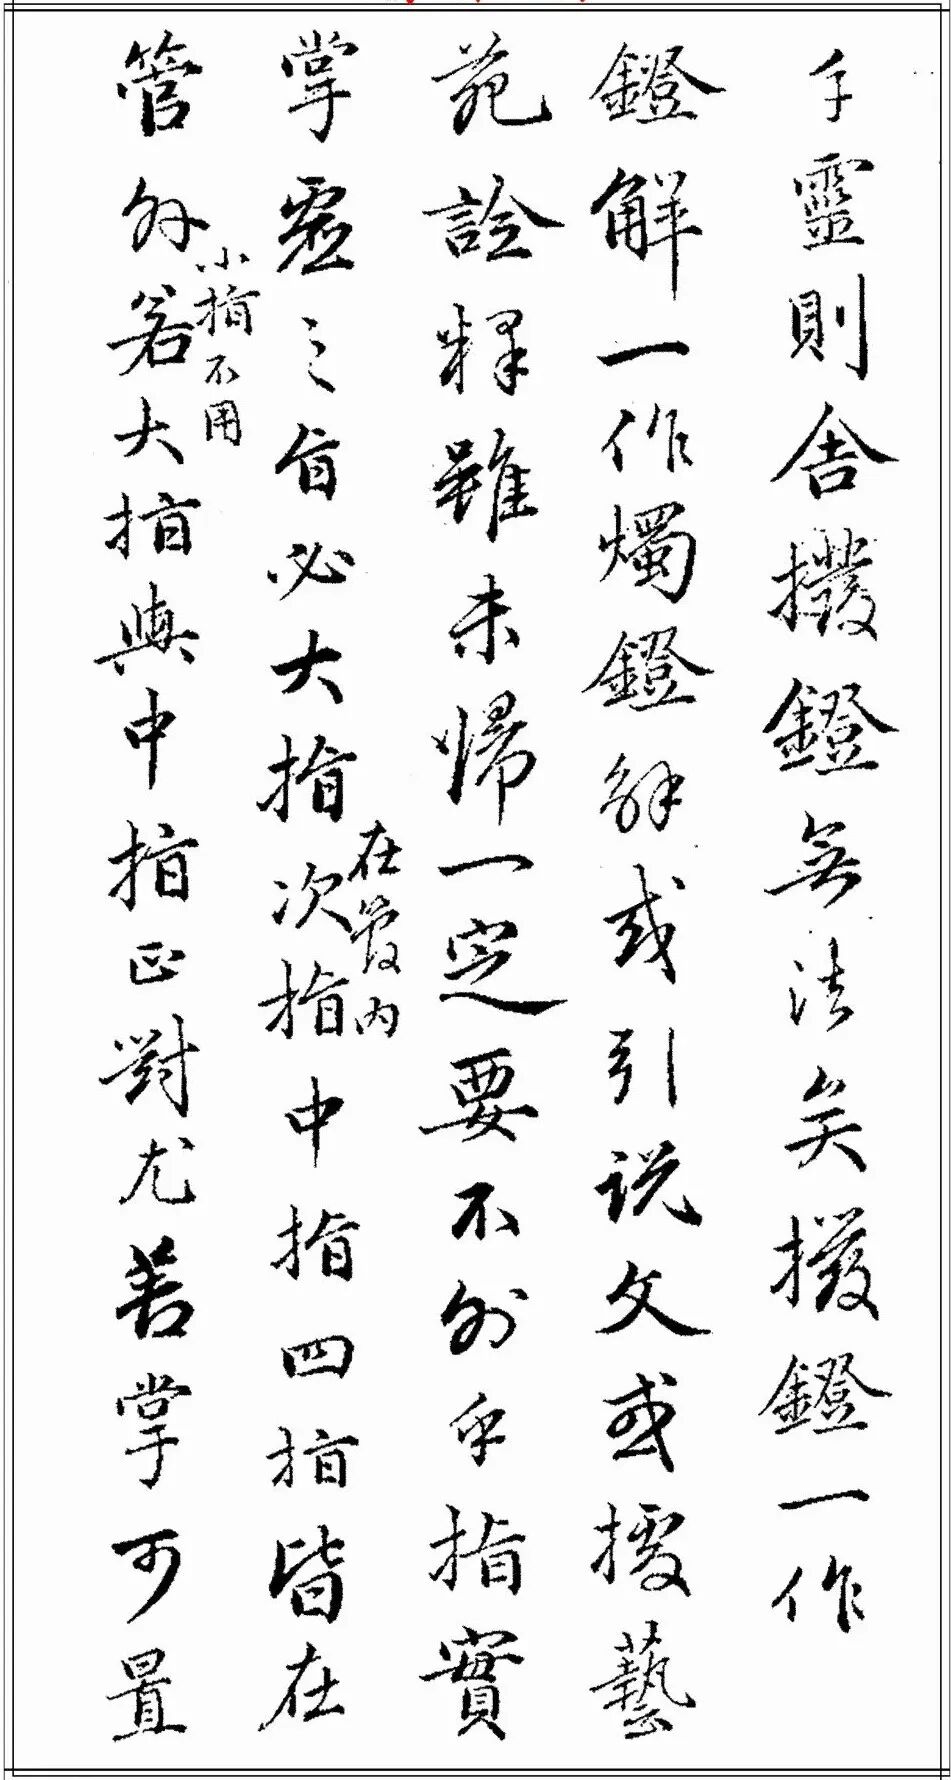 手靈則舍撥鐙無法矣撥鐙一作
鐙解一作燭鐙解或引説文或援藝
苑詮釋雖未歸一定要不外乎指實
掌虛之旨必大指次指中指四指皆在
在管内
管外若大指與中指正對尤善掌可置
小指不用